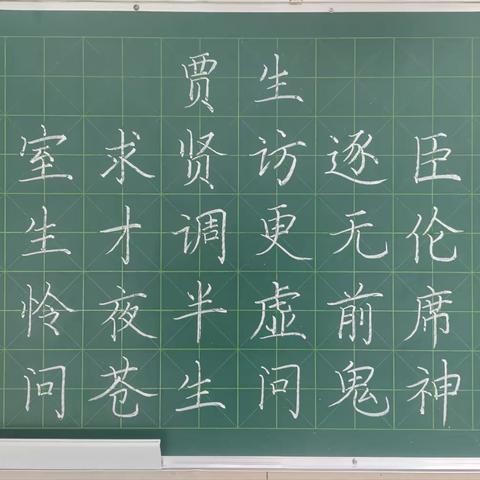 贾生
室求贤访逐臣
生才调更无伦
怜夜半虚前席
问苍生问鬼神